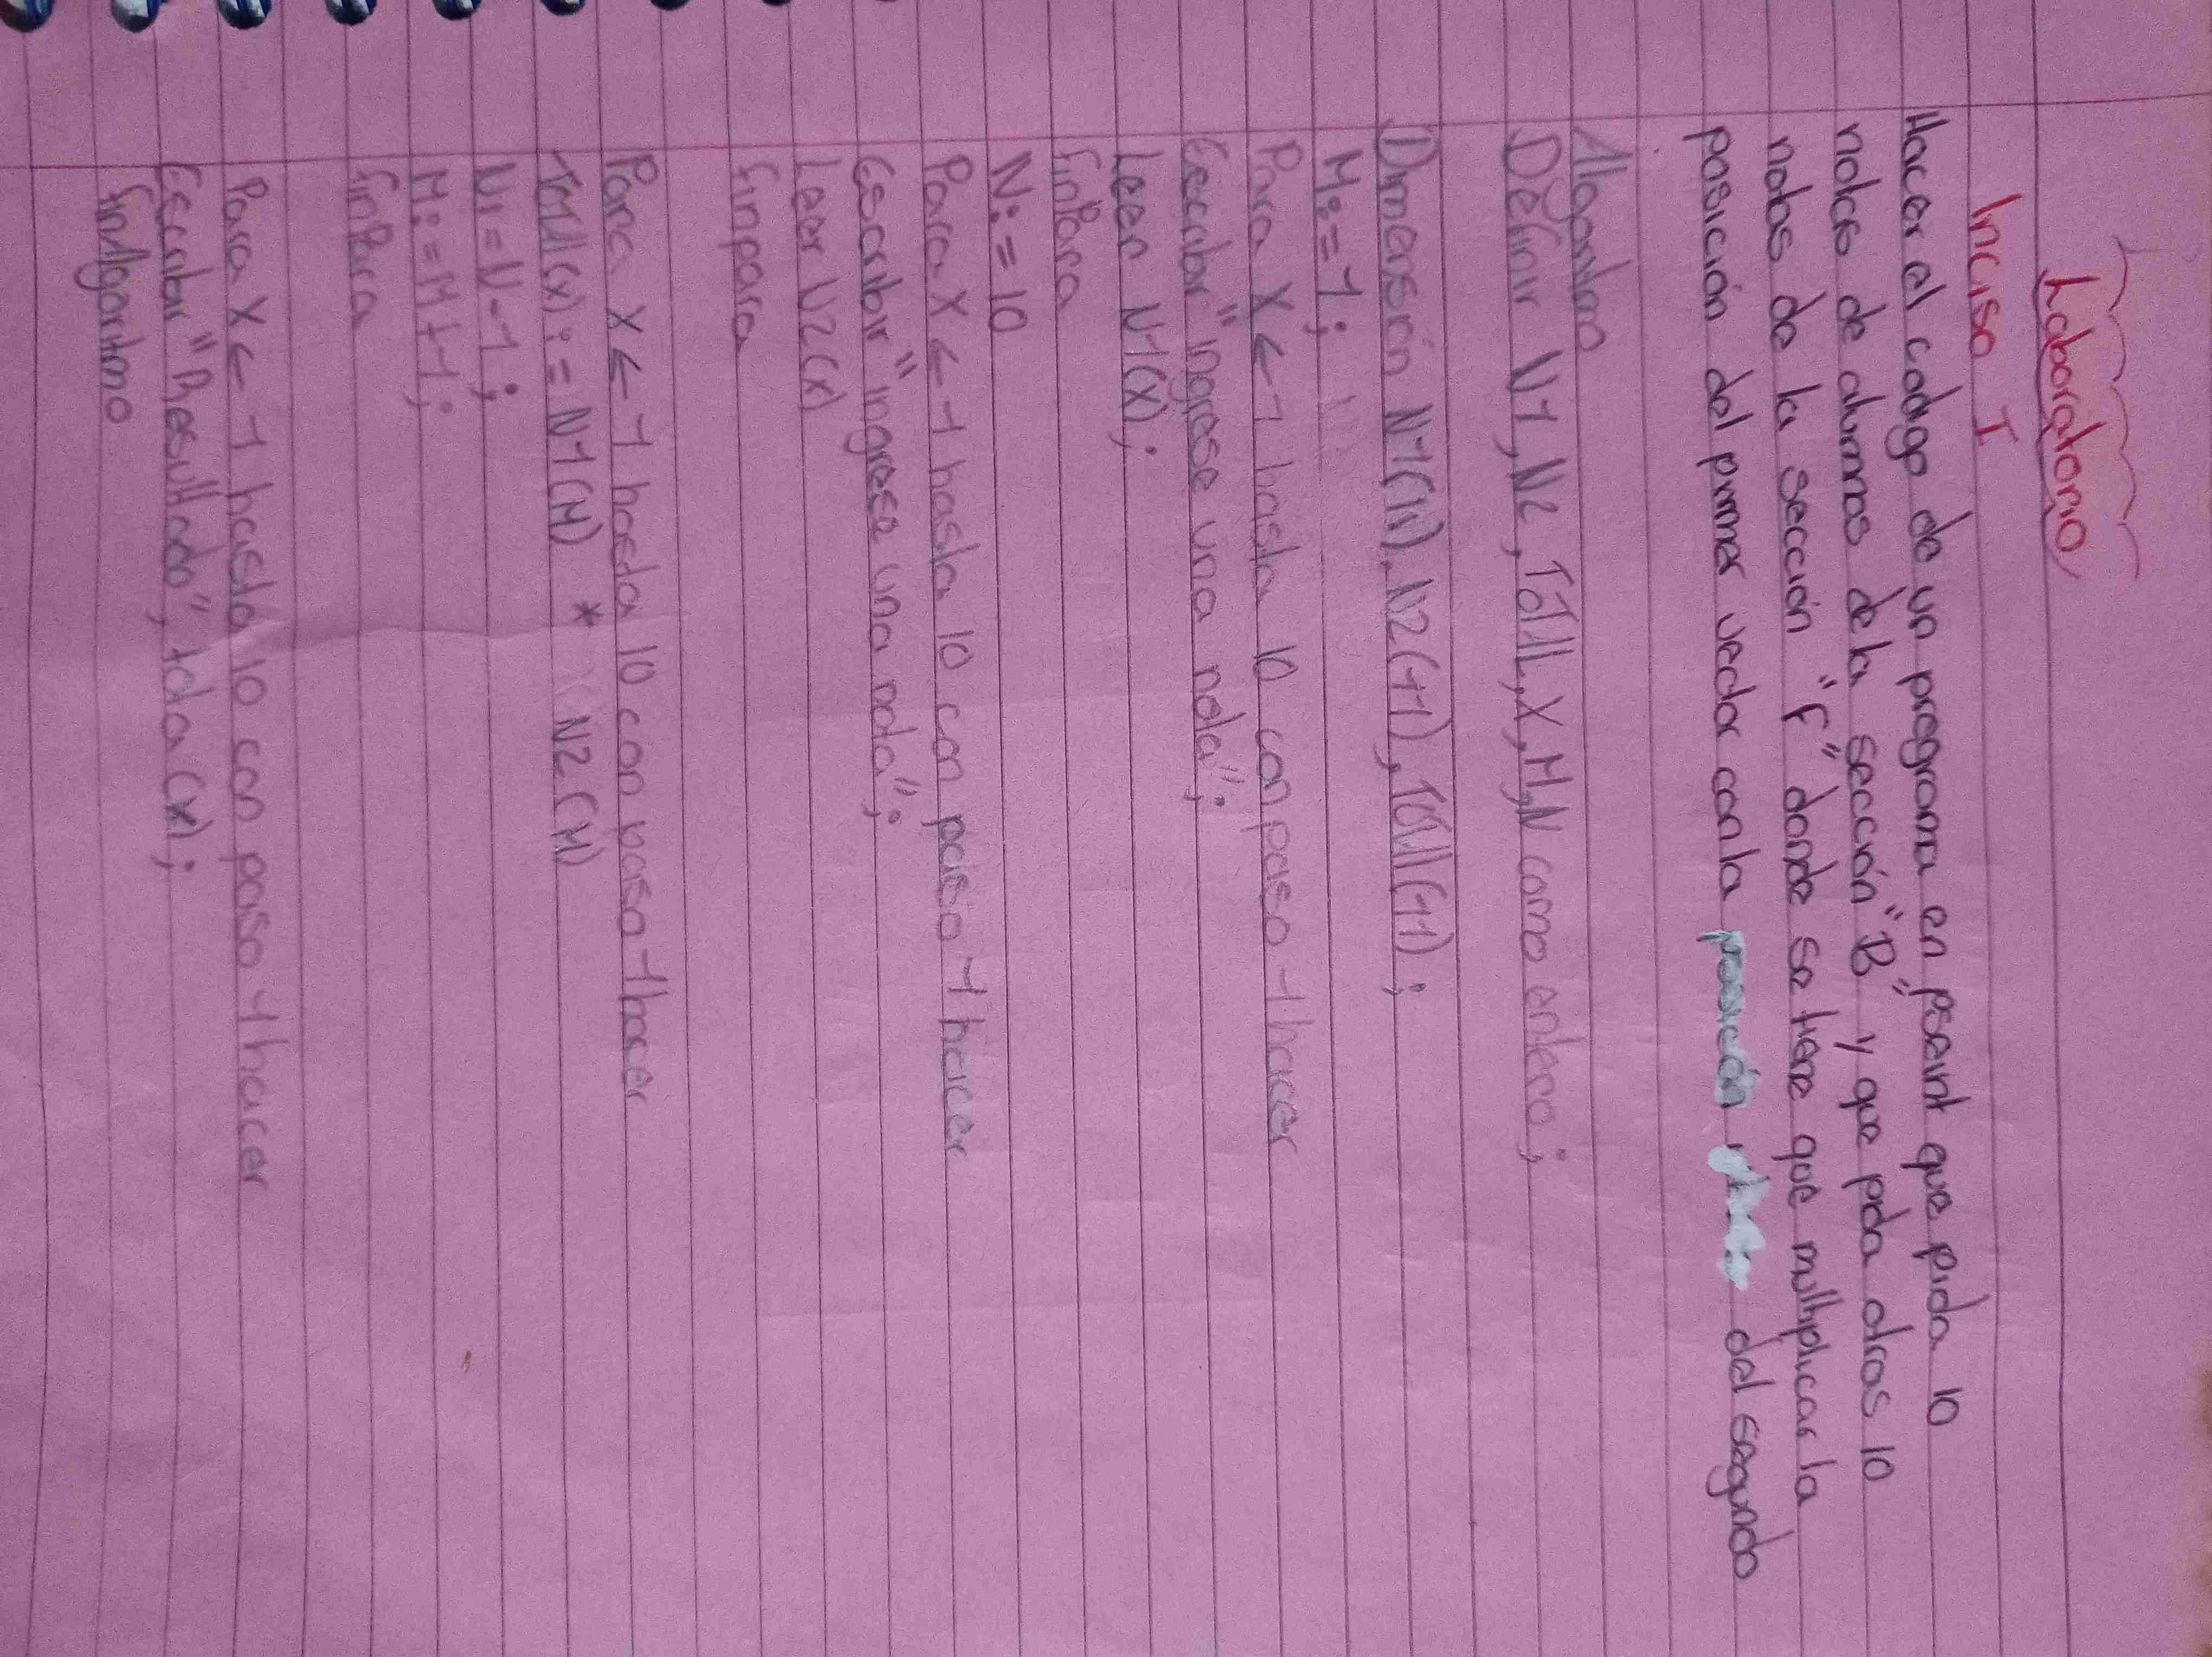 Laboratorio
Inciso I
Hacer el codigo de un programa en pseint que pida 10
notas de alumnos de la sección "B" y que pida otras 10
notas de la sección "F" donde se tiene que multiplicar la
posición del primer vector con la posición del segundo
Algoritmo
Definir N1, N2, TOTAL, X, M, N como entero;
Dimensión N1(11), N2(11), TOTAL(11);
M:=1;
Para X ← 1 hasta 10 con paso 1 hacer
Escribir "ingrese una nota";
Leer N1(X);
finPara
N:=10
Para X ← 1 hasta 10 con paso 1 hacer
Escribir "ingrese una nota";
Leer N2(X)
finpara
Para X ← 1 hasta 10 con paso 1 hacer
(X):= N1(M) * N2(M)
N:=N-1;
M:=M+1;
finPara
Para X ← 1 hasta 10 con paso 1 hacer
Escribir "Resultado", (X);
finAlgoritmo